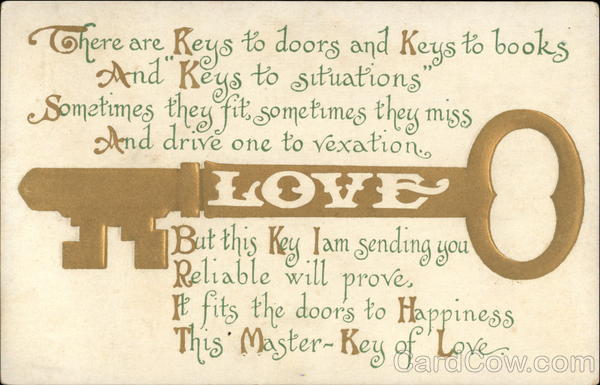 There are Keys to doors and Keys to books
And "Keys to situations"
Sometimes they fit, sometimes they miss
And drive one to vexation.
LOVE
But this Key I am sending you
Reliable will prove,
It fits the doors to Happiness
This Master-Key of Love.
CardCow.com